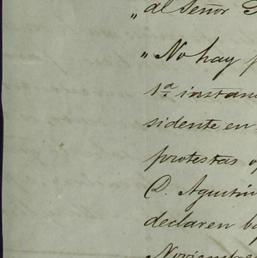 "al Señor G
"No hay p
1ª instan
sidente en
protestas o
C. Agustin
declaren b
Noviembre